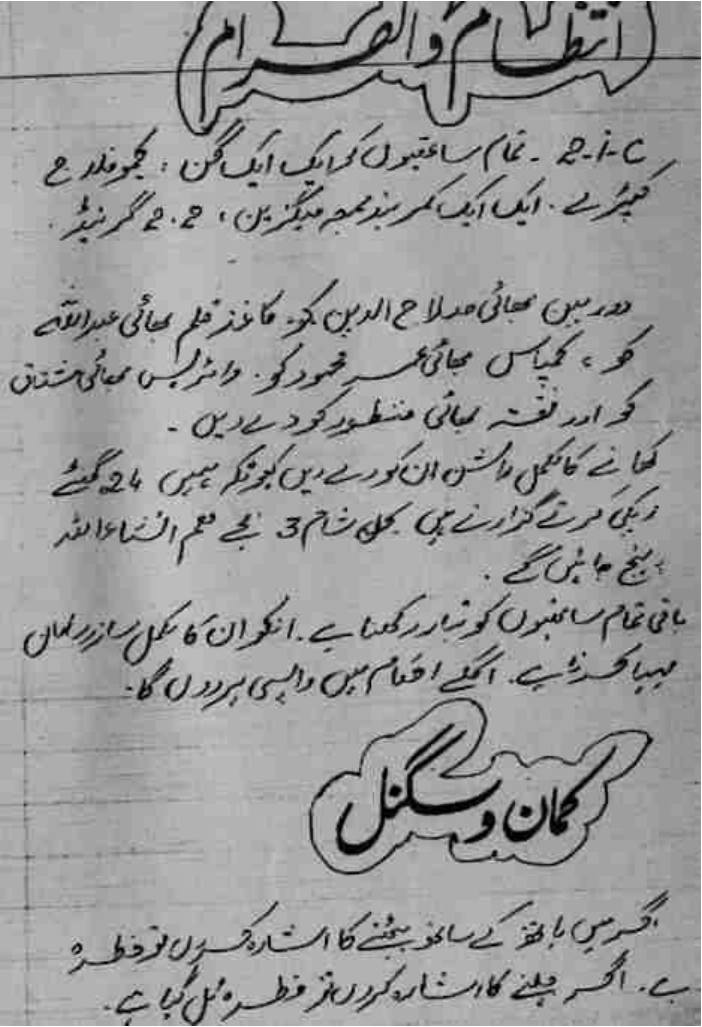 انتظام و انصرام
2-i-c - تمام ساتھیوں کو ایک ایک گن، کیموفلاج
کپڑے۔ ایک ایک کمر بند بمعہ میگزین، 2.2 گرنیڈ۔
دوربین بھائی صلاح الدین کو۔ کاغذ قلم بھائی عبداللہ
کو، کمپاس بھائی عمر محمود کو۔ وائرلیس بھائی مشتاق
کو اور نقشہ بھائی منظور کو دے دیں۔
کھانے کا مکمل راشن ان کو دے دیں کیونکہ ہمیں 24 گھنٹے
ریکی کرتے گزارنے ہیں کل شام 3 بجے ہم انشاءاللہ
پہنچ جائیں گے۔
باقی تمام ساتھیوں کو تیار رکھنا ہے۔ انکو ان کا مکمل سازوسامان
مہیا کرنا ہے۔ اگلے احکام میں واپسی پر دوں گا۔
کمان و سگنل
اگر میں ہاتھ کے ساتھ بیٹھنے کا اشارہ کروں تو خطرہ
ہے۔ اگر چلنے کا اشارہ کروں تو خطرہ ٹل گیا ہے۔